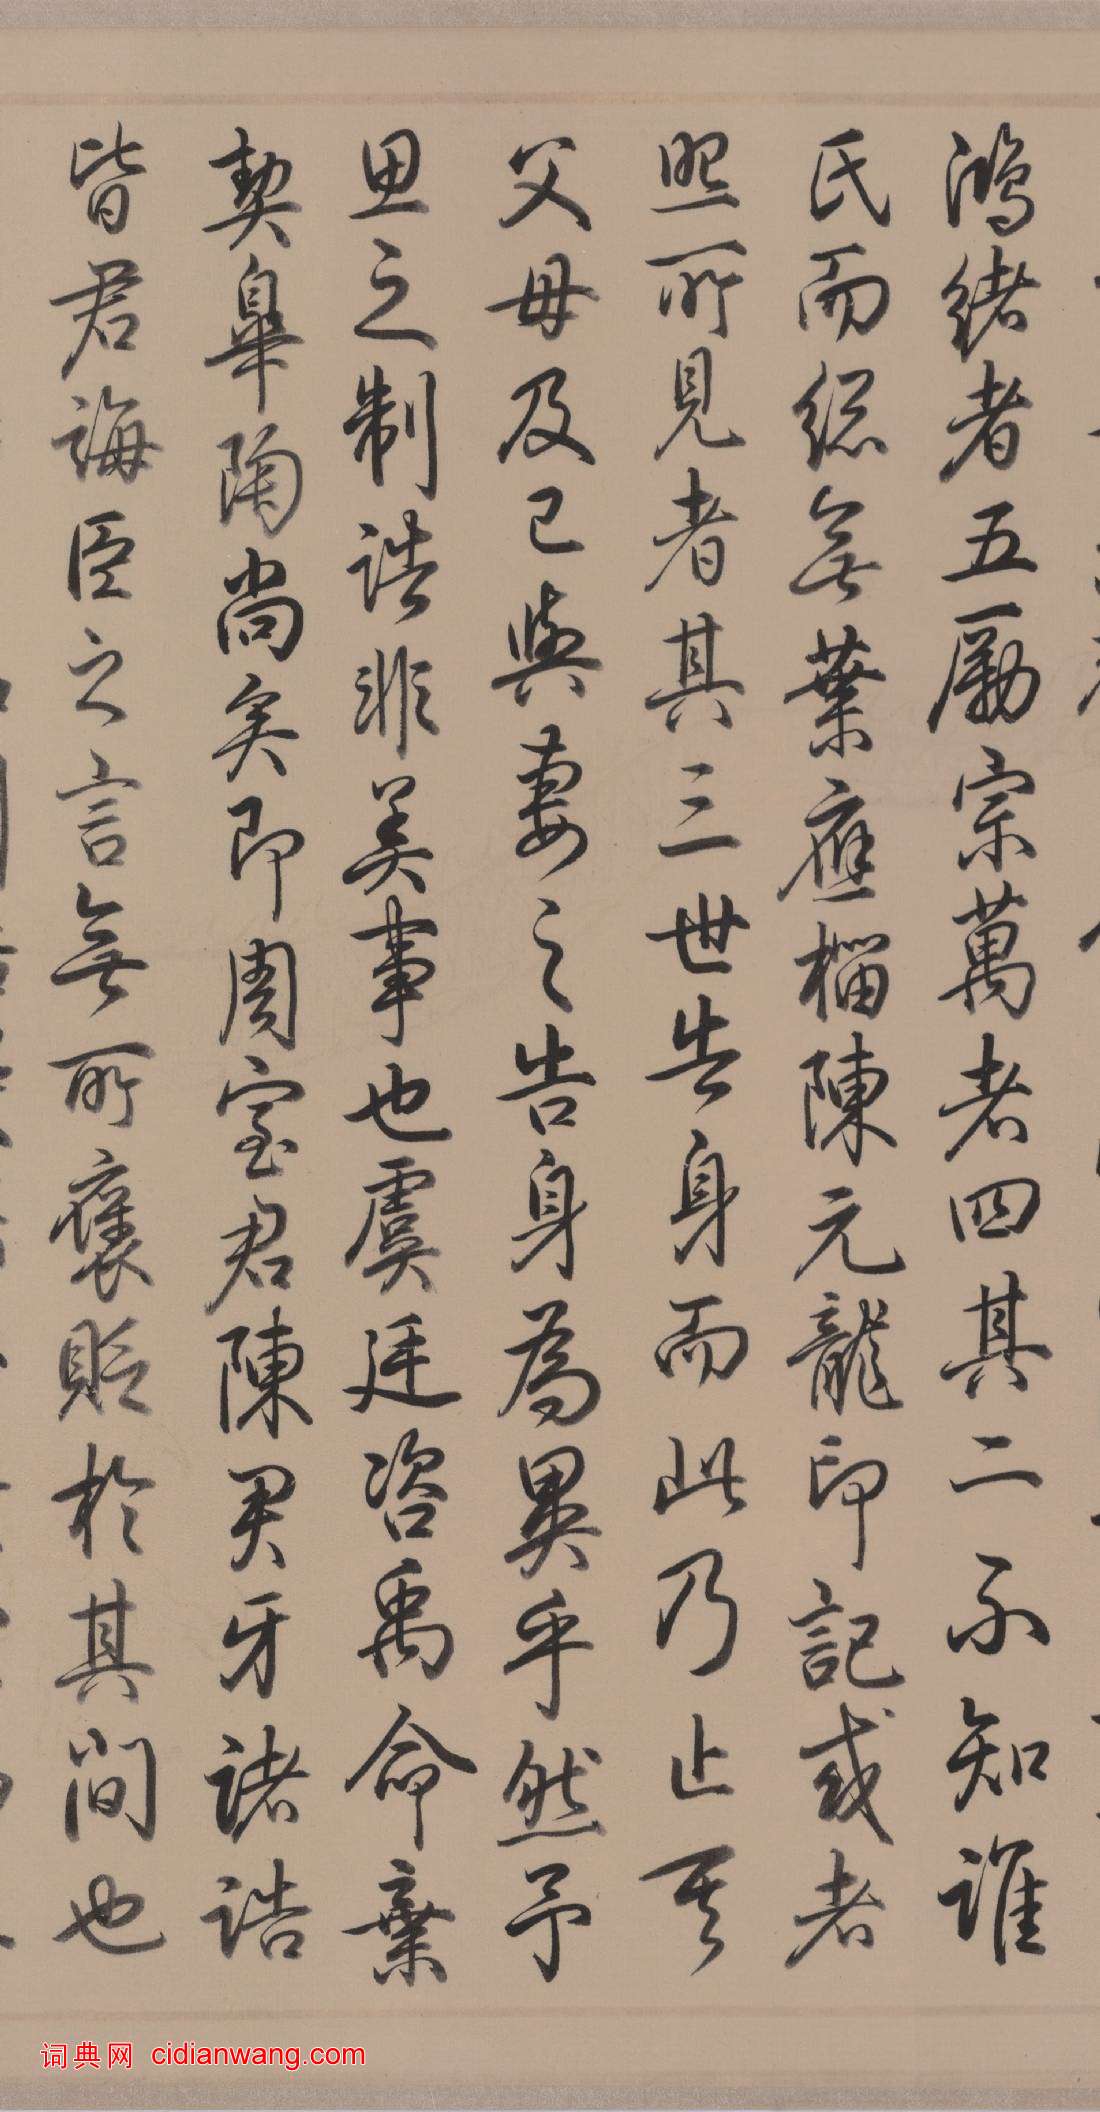 鴻緒者五厲宗萬者四其二不知誰
氏而總無葉應榴陳元龍印記或者
照所見者其三世告身而此乃止其
父母及己與妻之告身為異乎然予
思之制誥非美事也虞廷咨禹命棄
契皐陶尚矣即周室君陳君牙諸誥
皆君誨臣之言無所褒貶於其間也
词典网 cidianwang.com